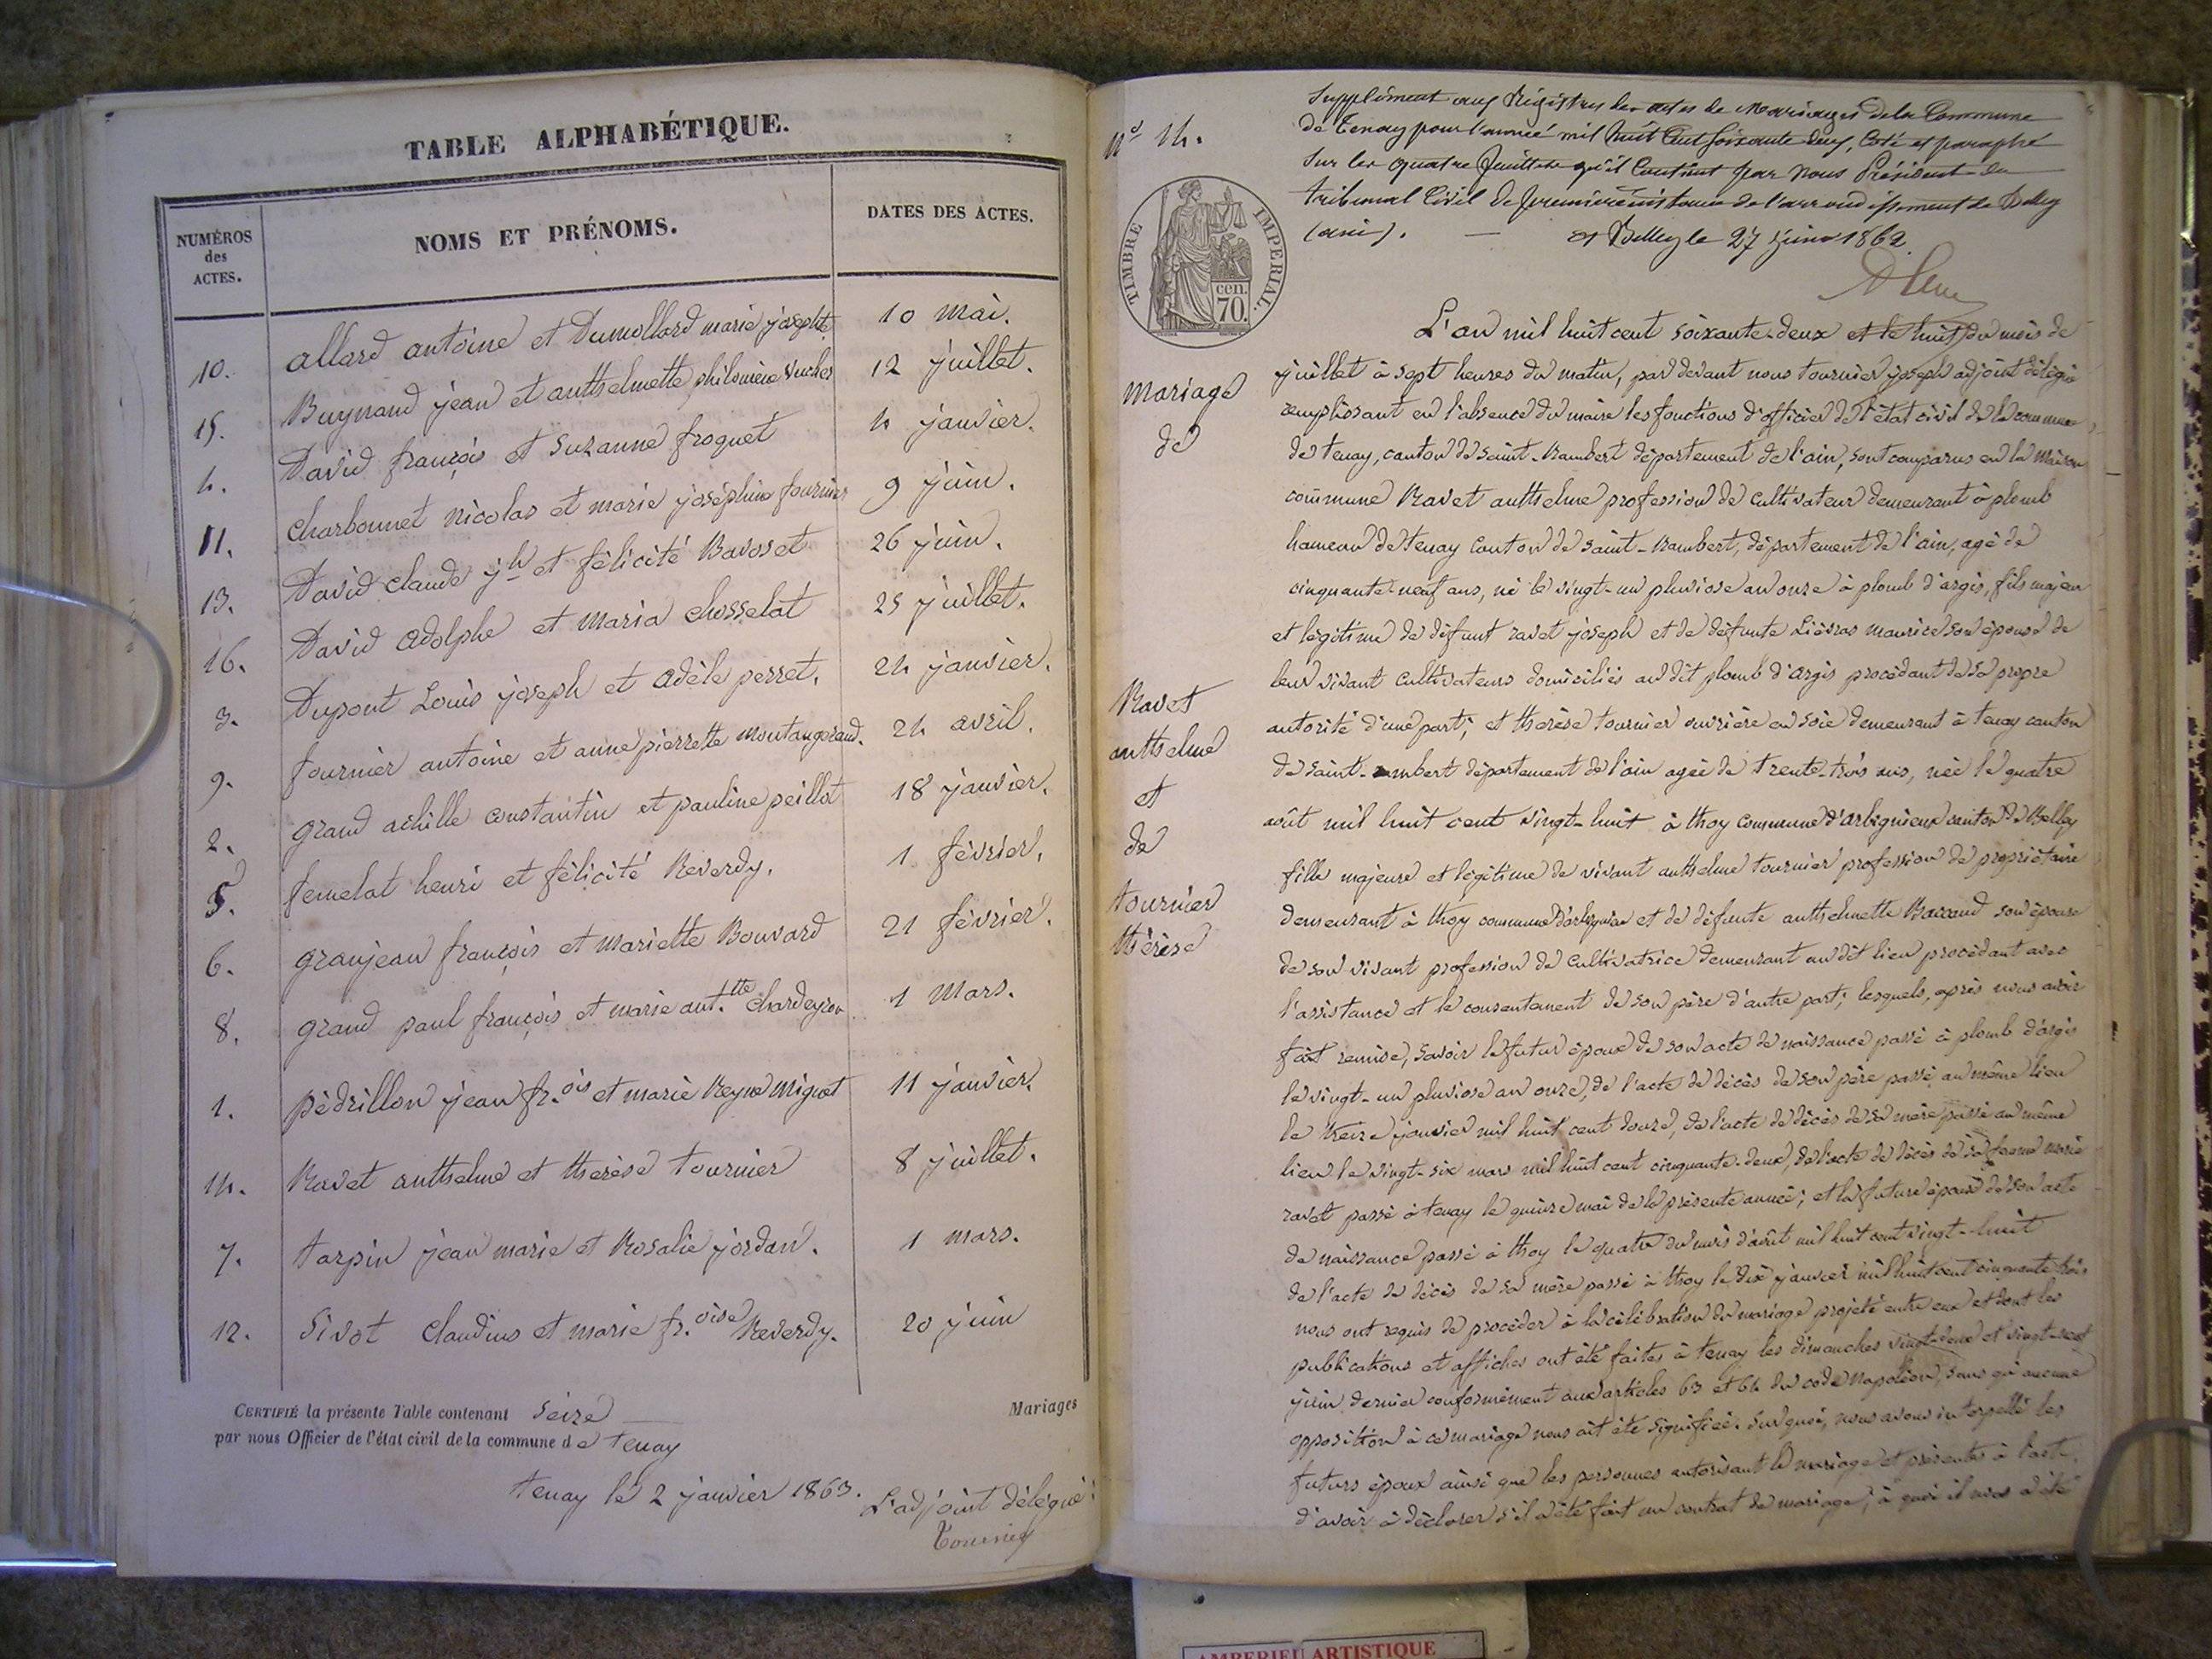 TABLE ALPHABÉTIQUE.
NUMÉROS des ACTES.
NOMS ET PRÉNOMS.
DATES DES ACTES.
10. allard antoine et Dumollard marie josephte 10 mai.
15. Buynand jean et anthelmette philomène 12 juillet.
4. David françois et Suzanne froquet 4 janvier.
11. charbonnet nicolas et marie joséphine fournier 9 juin.
13. David claude jh et félicité Ravoset 26 juin.
16. David adolphe et maria chosselat 25 juillet.
3. Dupont Louis joseph et adèle perret. 24 janvier.
9. fournier antoine et anne pierrette montangerand. 24 avril.
2. grand achille constantin et pauline peillot 18 janvier.
5. femelat henri et félicité Reverdy. 1 février.
6. granjean françois et mariette Bouvard 21 février.
8. grand paul françois et marie ant.tte chardeyron 1 mars.
1. pédrillon jean fr.ois et marie Reyne Miguet 11 janvier.
14. Ravet anthelme et therèse tournier 8 juillet.
7. tarpin jean marie et Rosalie jordan. 1 mars.
12. Sivot claudius et marie fr.oise Reverdy. 20 juin
CERTIFIÉ la présente Table contenant Seize Mariages
par nous Officier de l'état civil de la commune de tenay
tenay le 2 janvier 1863.
L'adjoint délégué:
Tournier
No 14.
Supplément aux Régistres des actes de Mariages de la Commune
de Tenay pour l'année mil huit Cent soixante deux, Coté et paraphé
sur les quatre feuillets qu'il Contient par Nous Président du
tribunal Civil de première instance de l'arrondissement de Belley
(ain). — à Belley le 27 juin 1862.
TIMBRE IMPERIAL.
cen.
70.
Mariage
de
Ravet
anthelme
et
de
tournier
thérèse
L'an mil huit cent soixante-deux et le huit du mois de
juillet à sept heures du matin, par devant nous tournier joseph adjoint délégué
remplissant en l'absence du maire les fonctions d'officier de l'état civil de la commune
de tenay, canton de saint-Rambert département de l'ain, sont comparus en la maison
commune Ravet anthelme profession de cultivateur demeurant à plomb
hameau de tenay canton de saint-Rambert, département de l'ain, agé de
cinquante-neuf ans, né le vingt-un pluviose an onze à plomb d'argis, fils majeur
et légitime de défunt ravet joseph et de défunte Lièvras maurice son épouse de
leur vivant cultivateurs domiciliés au dit plomb d'argis procédant de sa propre
autorité d'une part; et therèse tournier ouvrière en soie demeurant à tenay canton
de saint-rambert département de l'ain agée de trente-trois ans, née le quatre
août mil huit cent vingt-huit à thoy commune d'arbignieu canton de Belley
fille majeure et légitime de vivant anthelme tournier profession de propriétaire
demeurant à thoy commune d'arbignieu et de défunte anthelmette son épouse
de son vivant profession de cultivatrice demeurant au dit lieu procédant avec
l'assistance et le consentement de son père d'autre part; lesquels, après nous avoir
fait remise, savoir le futur époux de son acte de naissance passé à plomb d'argis
le vingt-un pluviose an onze, de l'acte de décès de son père passé au même lieu
le treize janvier mil huit cent douze, de l'acte de décès de sa mère passé au même
lieu le vingt-six mars mil huit cent cinquante-deux, de l'acte de décès de sa femme marie
ravet passé à tenay le quinze mai de la présente année; et la future épouse de son acte
de naissance passé à thoy le quatre du mois d'août mil huit cent vingt-huit
de l'acte de décès de sa mère passé à thoy le dix janvier mil huit cent cinquante trois
nous ont requis de procéder à la célébration du mariage projeté entre eux et dont les
publications et affiches ont été faites à tenay les dimanches vingt-deux et vingt-neuf
juin dernier conformément aux articles 63 et 64 du code napoléon, sans qu'aucune
opposition à ce mariage nous ait été signifiée. Sur quoi, nous avons interpellé les
futurs époux ainsi que les personnes autorisant le mariage et présentes à l'act,
d'avoir à déclarer s'il a été fait un contrat de mariage; à quoi il nous a été
AMBERIEU ARTISTIQUE